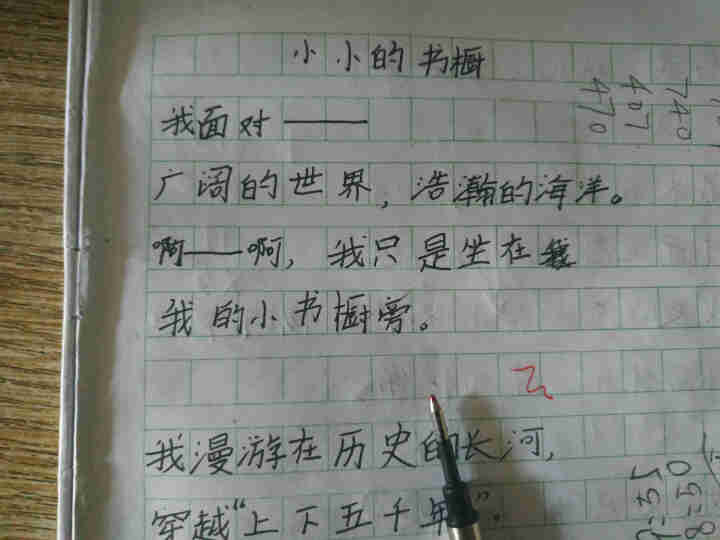 小小的书橱
我面对——
广阔的世界，浩瀚的海洋。
啊——啊，我只是坐在
我的小书橱旁。
我漫游在历史的长河，
穿越“上下五千年”.
740
407
470